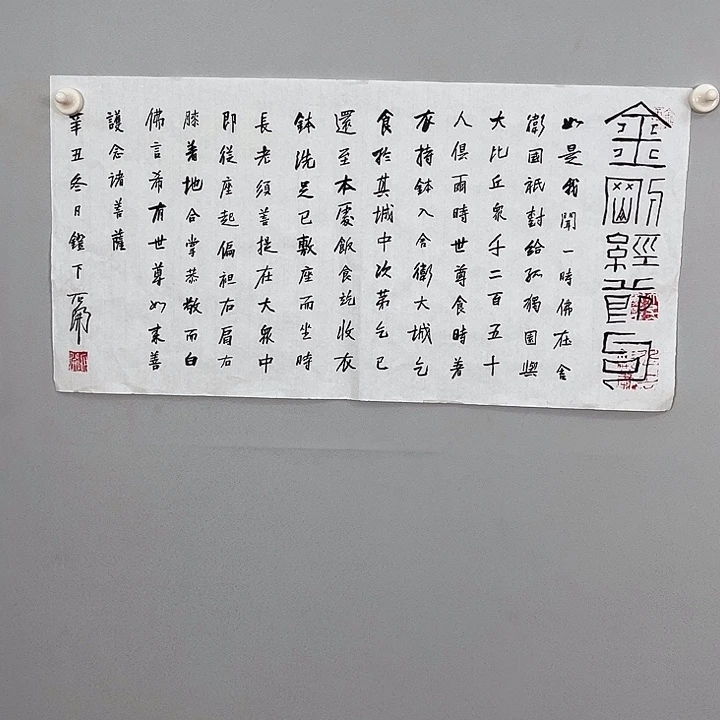 金剛經首
如是我聞一時佛在舍
衛國祇對給孤獨園與
大比丘眾千二百五十
人俱爾時世尊食時著
衣持鉢入舍衛大城乞
食於其城中次第乞已
還至本處飯食訖收衣
鉢洗足已敷座而坐時
長老須菩提在大眾中
即從座起偏袒右肩右
膝著地合掌恭敬而白
佛言希有世尊如來善
護念諸菩薩
辛丑冬日鐙下